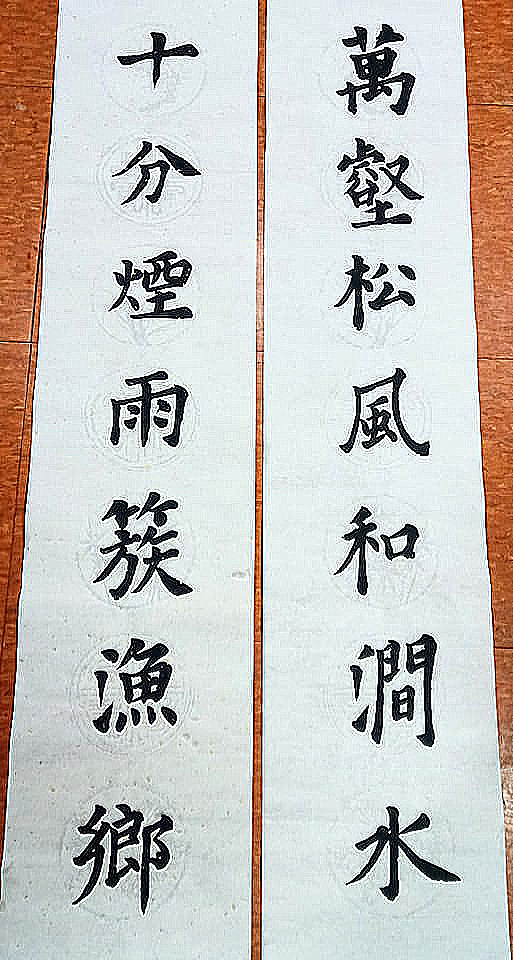 萬壑松風和澗水
十分煙雨簇漁鄉